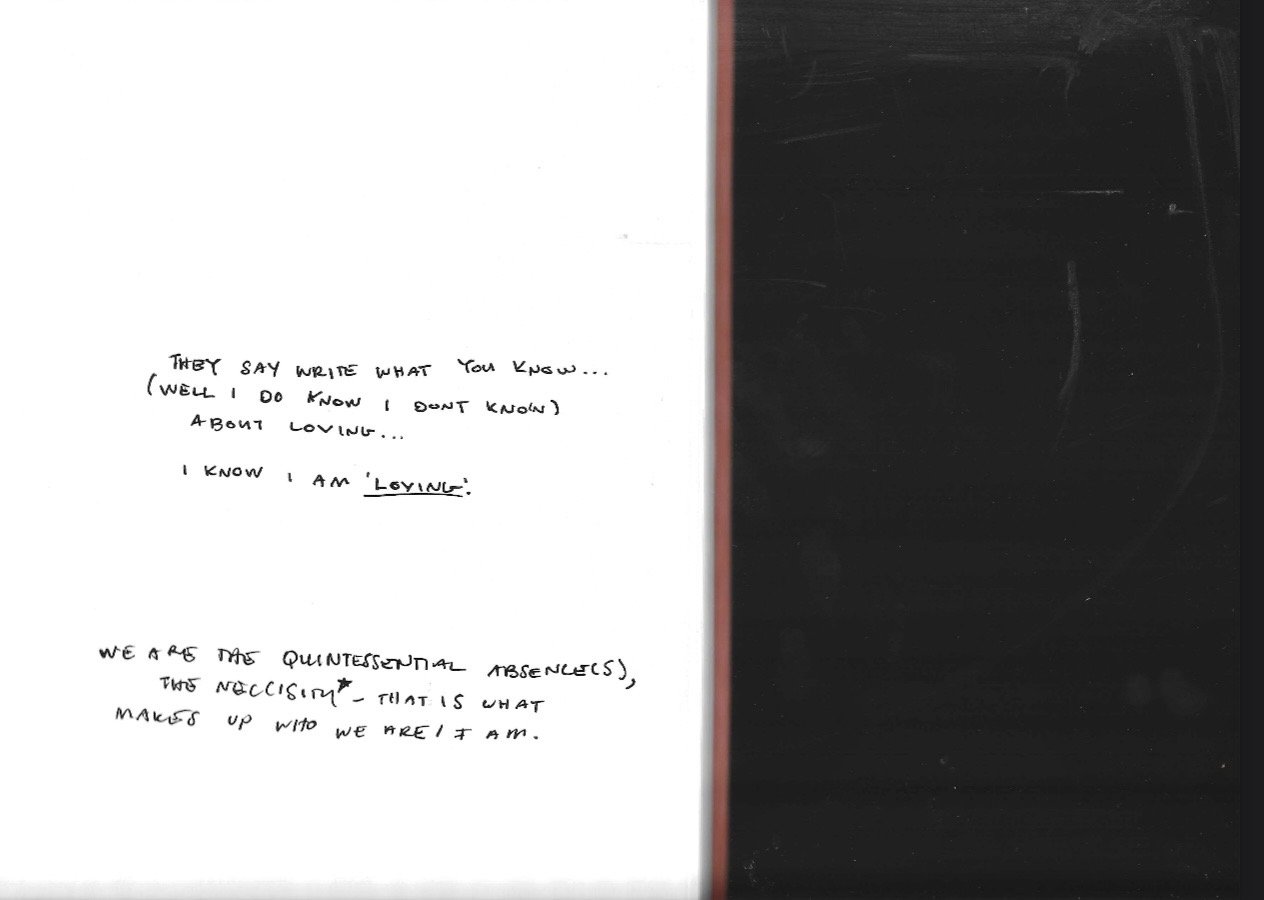 THEY SAY WRITE WHAT YOU KNOW...
(WELL I DO KNOW I DONT KNOW)
ABOUT LOVING...
I KNOW I AM 'LOVING'.
WE ARE THE QUINTESSENTIAL ABSENCE(S),
THE NECCISITY* – THAT IS WHAT
MAKES UP WHO WE ARE / I AM.